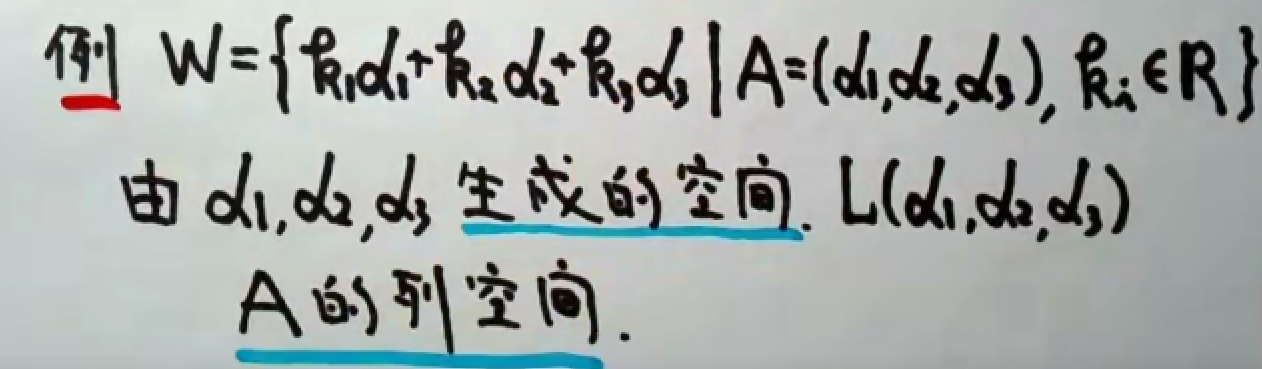 例 W={k₁α₁+k₂α₂+k₃α₃|A=(α₁,α₂,α₃), kᵢ∈R}
由 α₁,α₂,α₃ 生成的空间. L(α₁,α₂,α₃)
A的列空间.